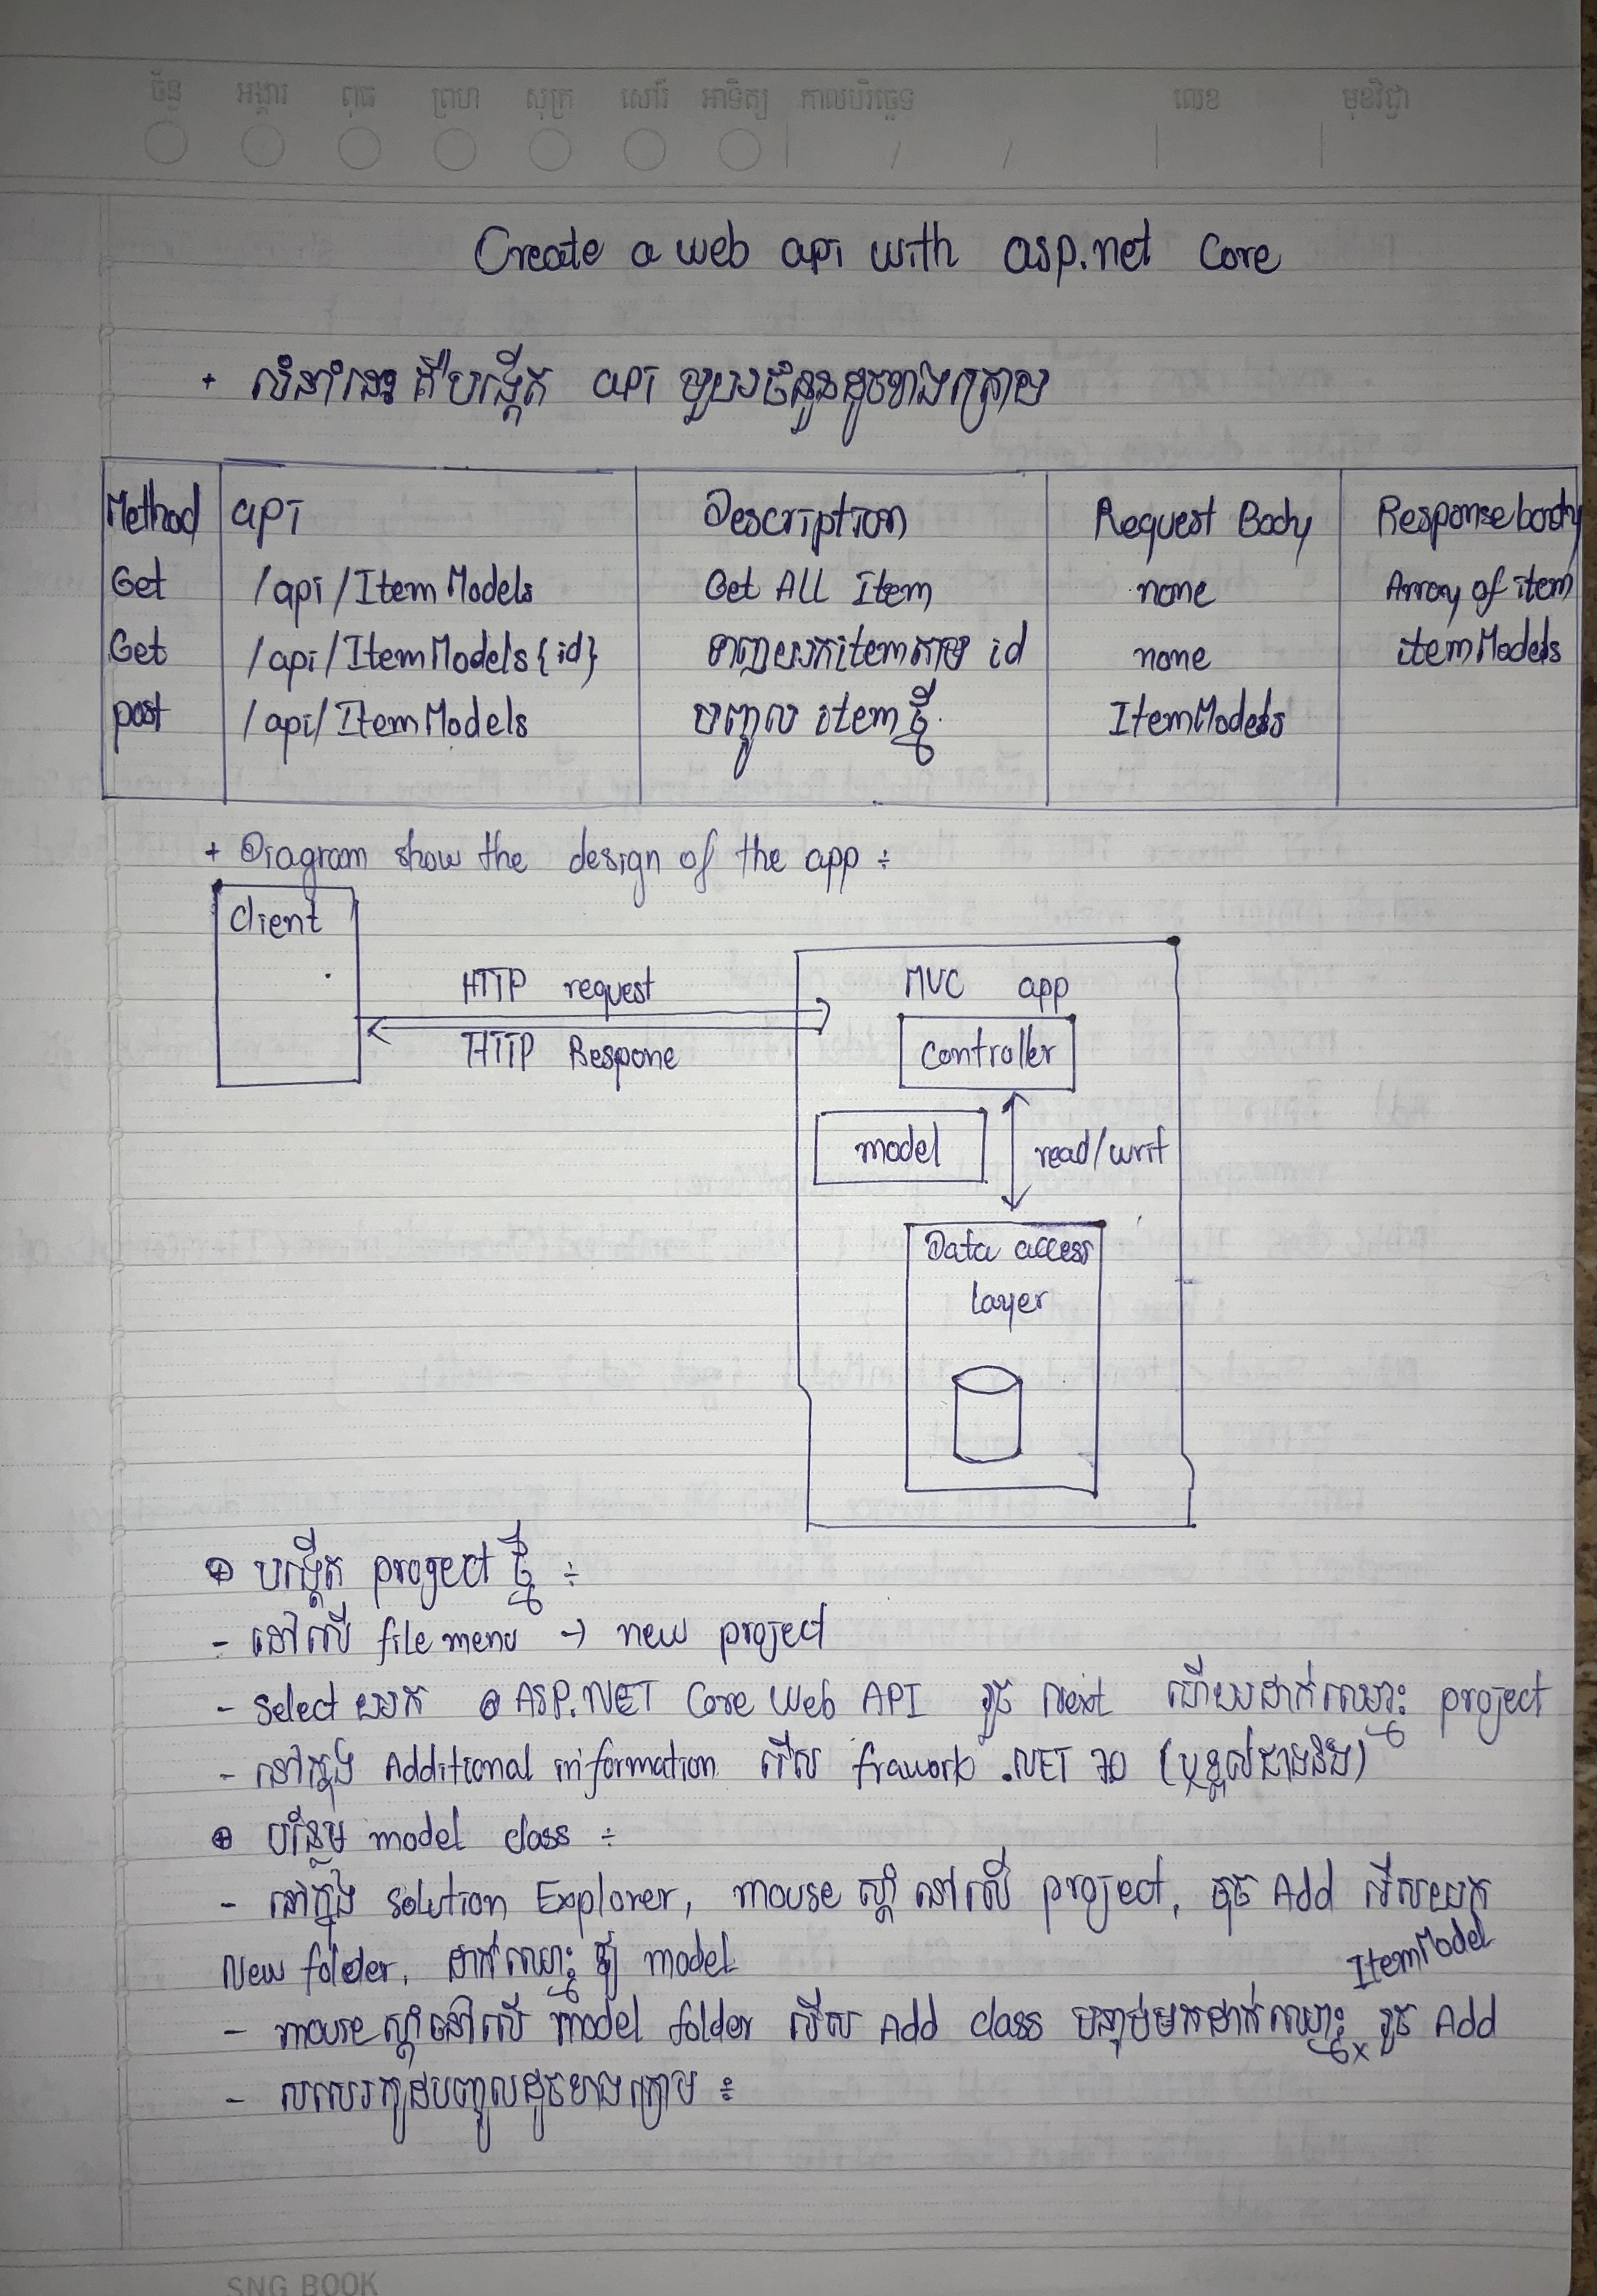 ច័ន្ទ អង្គារ ពុធ ព្រហ សុក្រ សៅរ៍ អាទិត្យ កាលបរិច្ឆេទ / / លេខ មុខវិជ្ជា
Create a web api with asp.net Core
+ លំនាំនេះ គឺបង្កើត api មួយចំនួនដូចខាងក្រោម
Method api Description Request Body Response body
Get /api/ItemModels Get ALL Item none Array of item
Get /api/ItemModels{id} ទាញយកitemតាម id none itemModels
post /api/ItemModels បញ្ចូល item ថ្មី ItemModels
+ Diagram show the design of the app ÷
Client
HTTP request
HTTP Respone
MVC app
Controller
model
read/writ
Data access
layer
⊕ បង្កើត project ថ្មី ÷
- នៅលើ file menu → new project
- Select យក ASP.NET Core Web API រួច Next ហើយដាក់ឈ្មោះ project
- នៅក្នុង Additional information រើស frawork .NET 70 (ឬខ្ពស់ជាងនឹង)
⊕ បន្ថែម model class ÷
- នៅក្នុង Solution Explorer, mouse ស្តាំ នៅលើ project, ចុច Add រើសយក
New folder, ដាក់ឈ្មោះ ឱ្យ model
ItemModel
- mouse ស្តាំនៅលើ model folder រើស Add class បន្ទាប់មកដាក់ឈ្មោះ x រួច Add
- សរសេរកូដបញ្ចូលដូចខាងក្រោម ÷
SNG BOOK